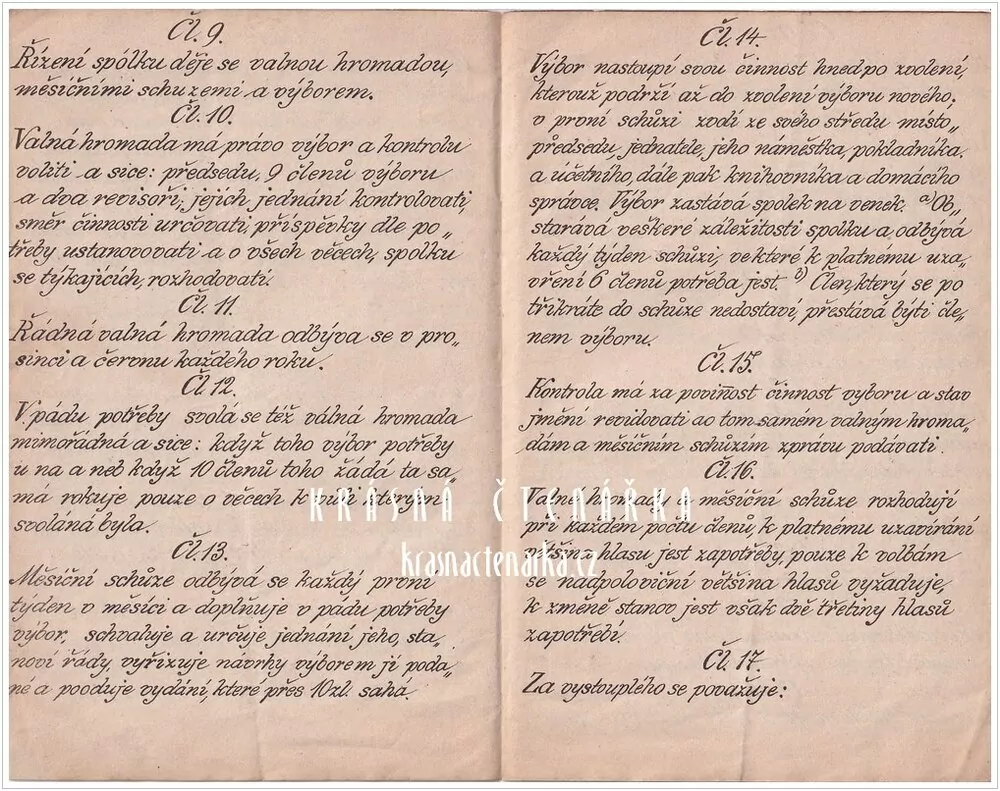 Čl. 9.
Řízení spolku děje se valnou hromadou,
měsíčními schuzemi a výborem.
Čl. 10.
Valná hromada má právo výbor a kontrolu
voliti a sice: předsedu, 9 členů výboru
a dva revisoři, jejich jednání kontrolovati,
směr činnosti určovati, příspěvky dle po„
třeby ustanovovati a o všech věcech, spolku
se týkajících, rozhodovati.
Čl. 11.
Řádná valná hromada odbýva se v pro„
sinci a červnu každého roku.
Čl. 12.
V pádu potřeby svolá se též válná hromada
mimořádná a sice: když toho výbor potřeby
u na a neb když 10 členů toho žádá ta sa„
má rokuje pouze o věcech k vůli kterým
svolána byla.
Čl. 13.
Měsíční schůze odbývá se každý první
týden v měsíci a doplňuje v pádu potřeby
výbor, schvaluje a určuje jednání jeho, sta„
noví řády, vyřizuje návrhy výborem jí poda„
né a pooduje vydání, které přes 10zl. sahá.
Čl. 14.
Výbor nastoupí svou činnost hned po zvolení,
kterouž podrží až do zvolení výboru nového.
v první schůzi zvolí ze svého středu místo„
předsedu, jednatele, jeho náměstka, pokladníka.
a účetního, dále pak knihovníka a domácího
správce. Výbor zastává spolek na venek. a) Ob„
starává veškeré záležitosti spolku a odbývá
každý týden schůzi, ve které k platnému uza„
vření 6 členů potřeba jest. b) Člen, který se po
třikráte do schůze nedostaví, přestává býti čle„
nem výboru.
Čl. 15.
Kontrola má za povinnost činnost vyboru a stav
jmění revidovati a o tom samém valným hroma„
dám a měsíčním schůzím zprávu podávati.
Čl. 16.
Valné hromady a měsíční schůze rozhodují
při každém počtu členů, k platnému uzavírání
většina hlasu jest zapotřeby, pouze k volbám
se nadpoloviční většina hlasů vyžaduje,
k změně stanov jest však dvě třetiny hlasů
zapotřebí.
Čl. 17.
Za vystouplého se považuje:
KRÁSNÁ ČTENÁŘKA
krasnactenarka.cz